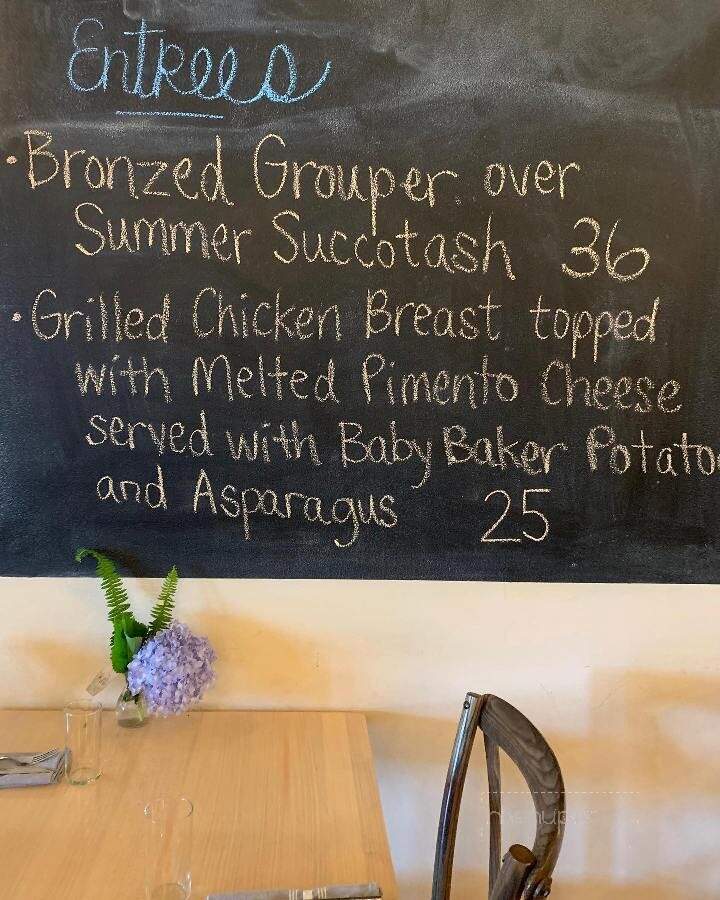 Entrees
• Bronzed Grouper over
Summer Succotash 36
• Grilled Chicken Breast topped
with Melted Pimento Cheese
served with Baby Baker Potato
and Asparagus 25